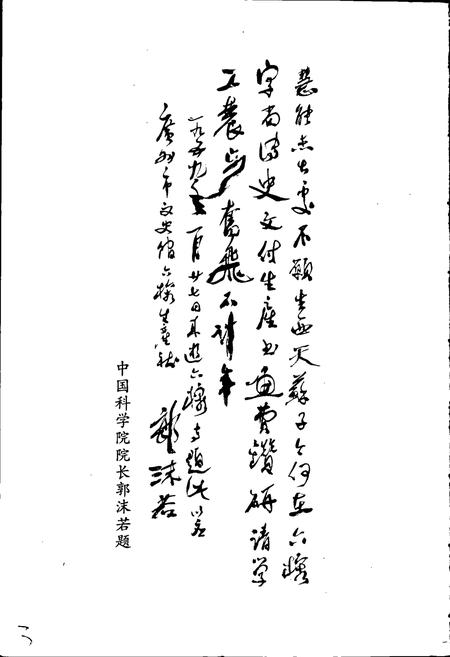 慧能杰出更不愿生西天苏子今何在六榕
字尚传史文付生产书画费钻研请学
工农步奋飞不计年
一九五九年一月廿七日来游六榕寺题此以应
广州市文史馆六榕生产社
郭沫若
中国科学院院长郭沫若题